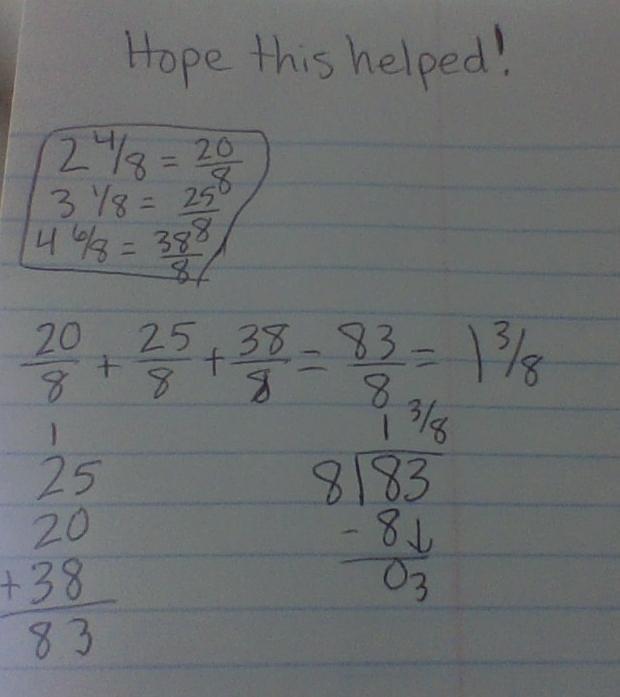 Hope this helped!
2 4/8 = 20/8
3 1/8 = 25/8
4 6/8 = 38/8
20/8 + 25/8 + 38/8 = 83/8 = 1 3/8
1
25
20
+38
83
1 3/8
8)83
- 8↓
03